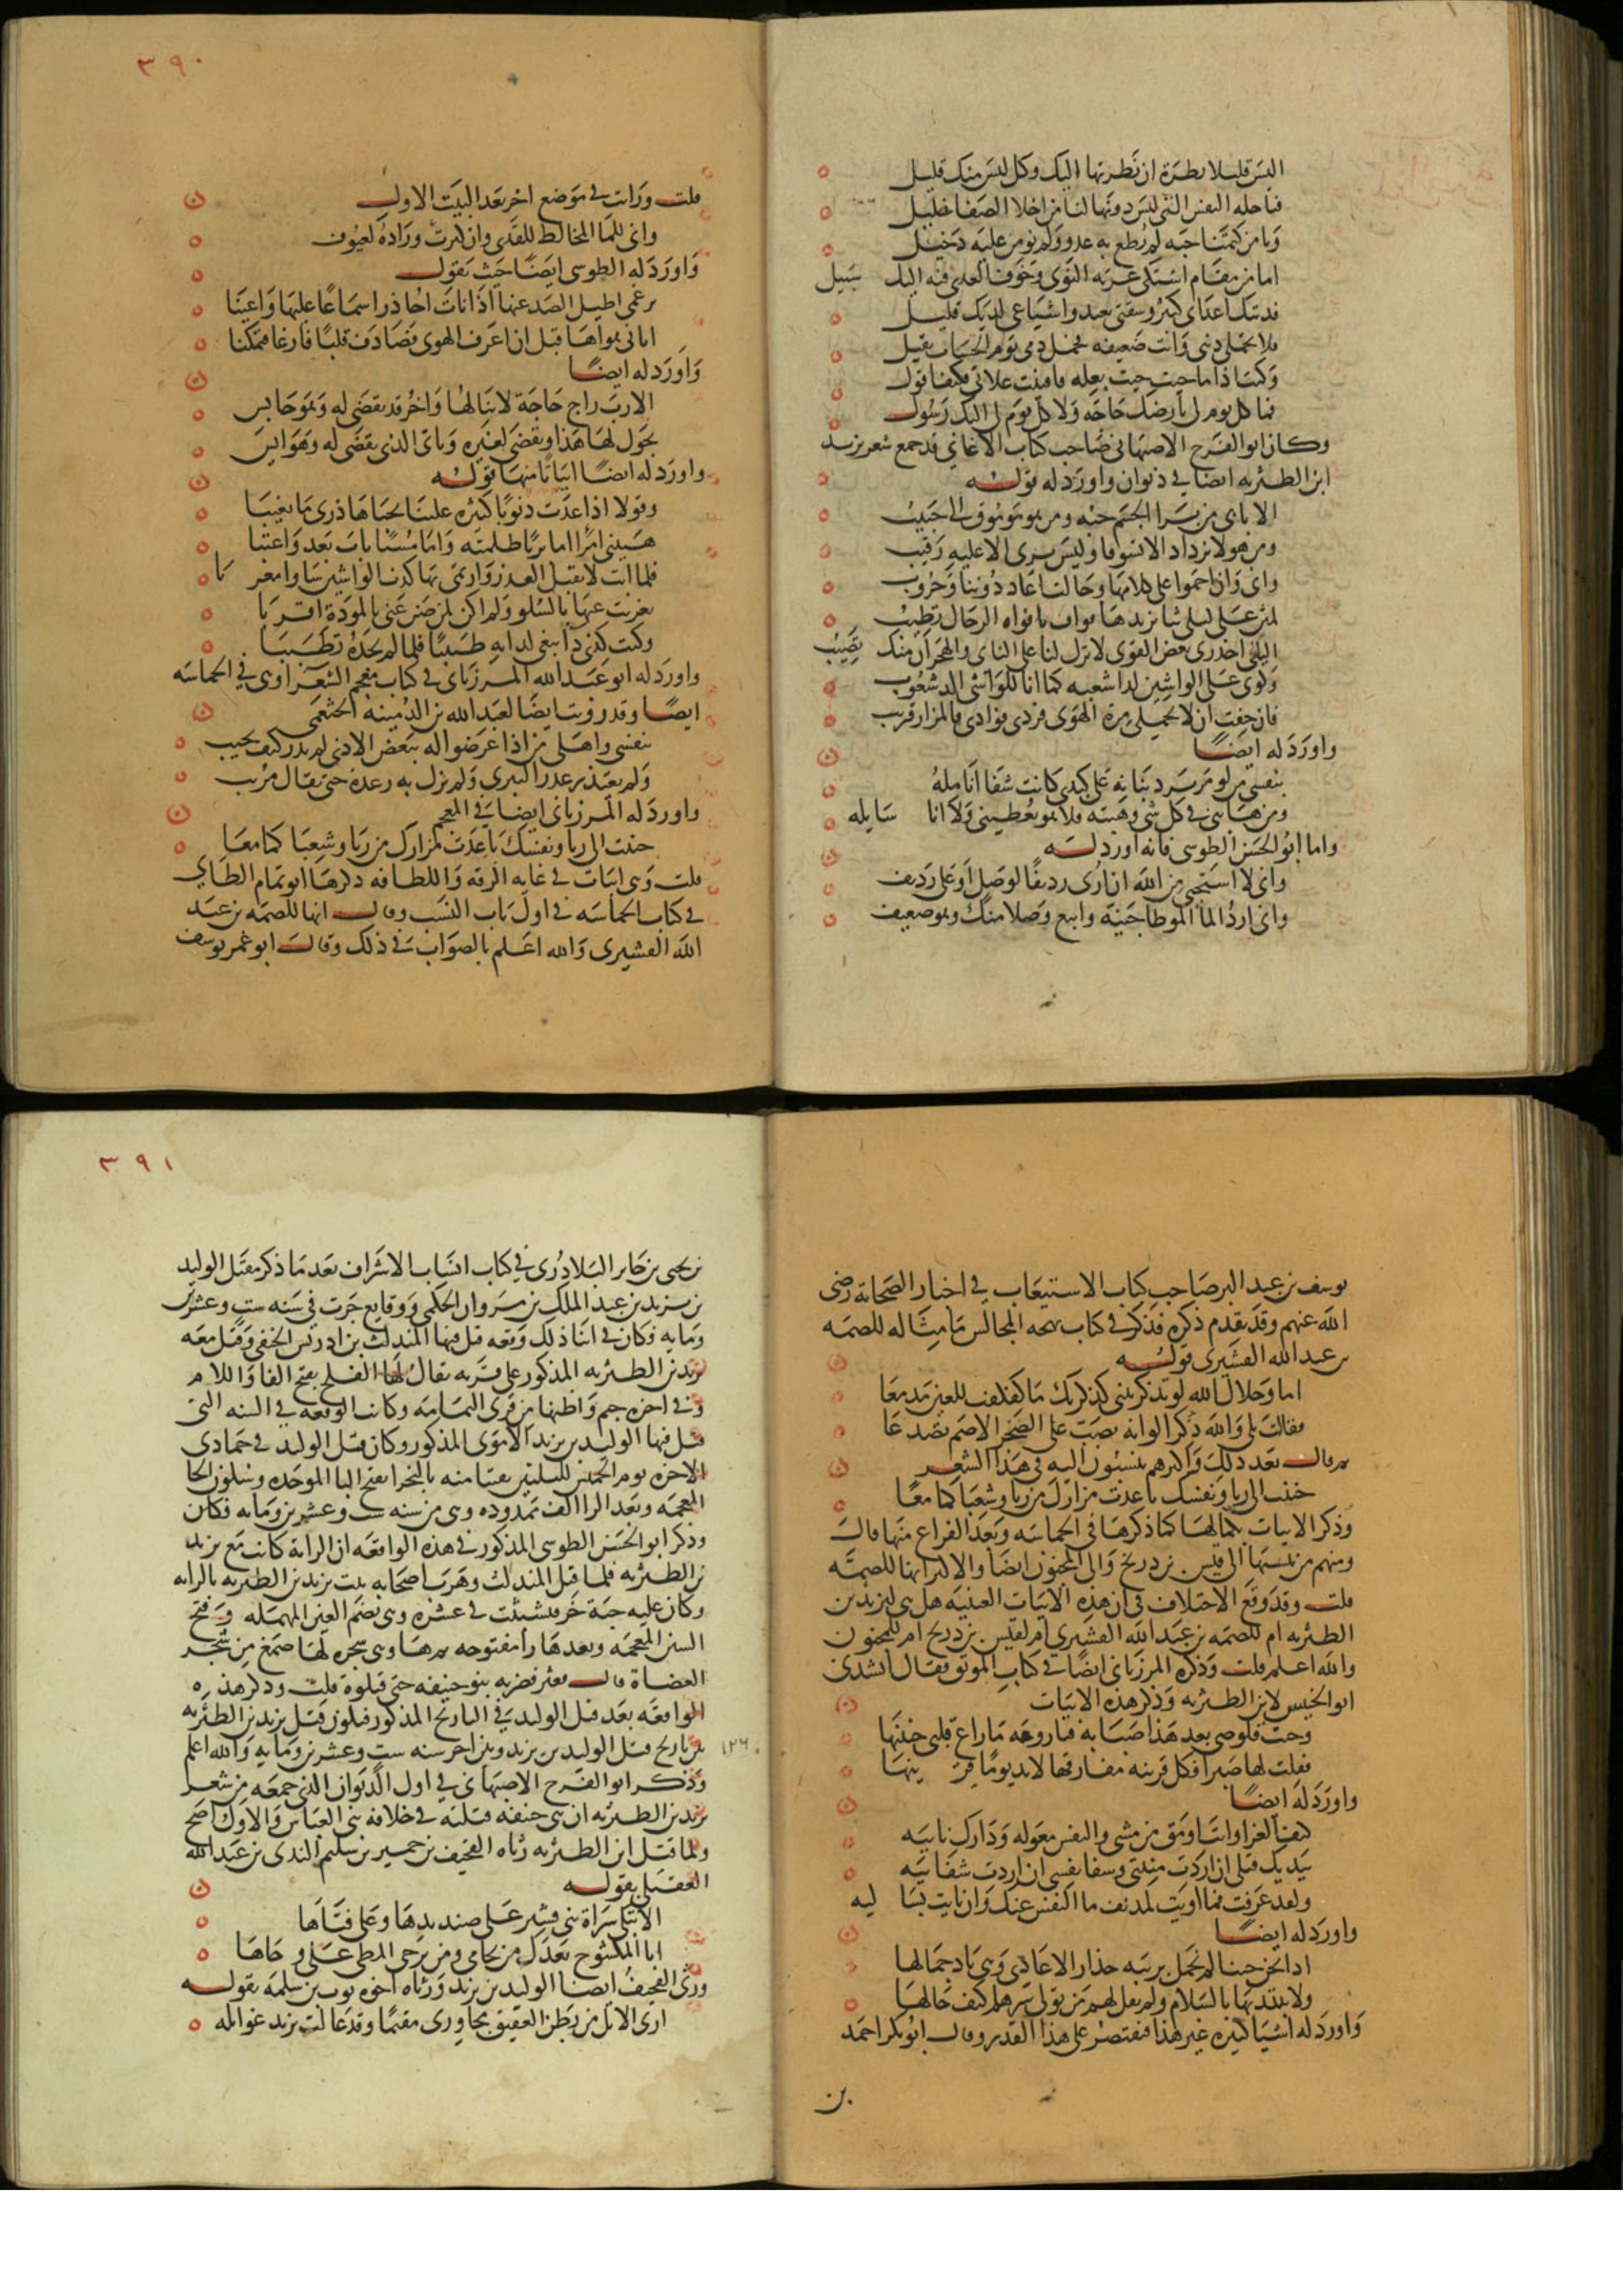 اليس قليلا نظرة ان نظرتها اليك وكل ليس منك قليل
فيا خلة النفس التي ليس دونها لنا من اخلا الصفا خليل
ويا من كتمنا حبه لم يطع به عدو ولم يومن عليه دخيل
اما من مقام اشتكى غربة النوى وخوف العدى فيه اليك سبيل
فديتك اعداي كثير وشقتي بعيد واشياعي لديك قليل
فلا تحملي ذنبي وانت ضعيفه فحمل دمي يوم الحساب ثقيل
وكنت اذا ما جيت جيت بعله فافنيت علاتي فكيف اقول
فما كل يوم لي بارضك حاجه ولا كل يوم لي اليك رسول
وكان ابو الفرج الاصبهاني صاحب كتاب الاغاني قد جمع شعر يزيد
ابن الطثريه ايضا في ديوان واورد له قوله
الا بابي من قد برا الجسم حبه ومن هو موموق الي حبيب
ومن هو لا يزداد الا تشوقا وليس يرى الا عليه رقيب
واني وان احموا علي كلامها وحالت اعاد دوننا وحروب
لمثن على ليلى ثنا يزيدها قواف بافواه الرجال تطيب
اليلى احذري نقض القوى لا يزل لنا على الناي والهجران منك نصيب
وكوني على الواشين لدا شغبه كما انا للواشي الد شغوب
فان خفت ان لا تحكمي مرة الهوى فردي فوادي فالمزار قريب
واورد له ايضا
بنفسي من لو مر برد بنانه على كبدي كانت شفا انامله
ومن هابني في كل شي وهبته فلا هو يعطيني ولا انا سايله
واما ابو الحسن الطوسي فانه اورد له
واني لا استحيي من الله ان ارى رديفا لوصل او علي رديف
واني ارد الما الموطا حنيه واتبع وصلا منك وهو ضعيف
٣٩٠
قلت ورات في موضع اخر بعد البيت الاول
واني للما المخالط للقذى وان كثرت وراده لعيوف
واورد له الطوسي ايضا حيث يقول
برغمي اطيل الصد عنها اذا نات احاذر اسماعا عليها واعينا
اتاني هواها قبل ان اعرف الهوى فصادف قلبا فارغا فتمكنا
واورد له ايضا
الا رب راج حاجة لا ينالها واخر قد تقضى له وهو جالس
يجول لها هذا وتقضى لغيره وتاتي الذي تقضى له وهو ايس
واورد له ايضا ابياتا منها قوله
وقولا اذا عدت ذنوبا كثيره علينا تجناها ذري ما تغيبا
هبيني امرا اما بريا ظلمته واما مسيا تاب بعد واعتبا
فلما ابت لا تقبل العذر وارتمى بها كذب الواشين شاوا مغر با
تعزيت عنها بالسلو ولم اكن لمن ضن عني بالمودة اقربا
وكنت كذي دا يبغي لدايه طبيبا فلما لم يجده تطببا
واورد له ابو عبد الله المرزباني في كتاب معجم الشعرا وهي في الحماسه
ايضا وقد رويت ايضا لعبد الله بن الدمينه الخثعمي
بنفسي واهلي من اذا عرضوا له ببعض الاذى لم يدر كيف يجيب
ولم يعتذر عذر البري ولم تزل به رعدة حتى يقال مريب
واورد له المرزباني ايضا في المعجم
حننت الى ريا ونفسك باعدت مزارك من ريا وشعبا كما معا
قلت وهي ابيات في غايه الرقه واللطافه ذكرها ابو تمام الطايي
في كتاب الحماسه في اول باب النسيب وقال انها للصمه بن عبد
الله القشيري والله اعلم بالصواب في ذلك وقال ابو عمر يوسف
يوسف بن عبد البر صاحب كتاب الاستيعاب في اخبار الصحابه رضي
الله عنهم وقد تقدم ذكره فذكر في كتاب بهجه المجالس ما مثاله للصمه
بن عبد الله القشيري قوله
اما وجلال الله لو تذكرينني كذكريك ما كفكفت للعين مدمعا
فقالت بلى والله ذكرا لو انه يصب على الصخر الاصم تصدعا
ثم قال بعد ذلك واكثرهم ينسبون اليه في هذا الشعر
حننت الى ريا ونفسك باعدت مزارك من ريا وشعبا كما معا
وذكر الابيات بكمالها كما ذكرها في الحماسه وبعد الفراغ منها قال
ومنهم من ينسبها الى قيس بن ذريح والى المجنون ايضا والاكثر انها للصمه
قلت وقد وقع الاختلاف في ان هذه الابيات العينيه هل هي ليزيد بن
الطثريه ام للصمه بن عبد الله القشيري ام لقيس بن ذريح ام للمجنون
والله اعلم قلت وذكره المرزباني ايضا في كتاب الموثق فقال انشدني
ابو الجيش لابن الطثريه وذكر هذه الابيات
وحنت قلوصي بعد هذا صبابه فيا روعه ما راع قلبي حنينها
فقلت لها صبرا فكل قرينه مفارقها لا بد يوما قر ينها
واورد له ايضا
والنفس معوله ودارك نابيه
بيديك قتلي ان اردت منيتي وشفا نفسي ان اردت شفابيه
ولقد عرفت فما اويت لمدنف ما النفس عنك وان نايت بسا ليه
واورد له ايضا
اذا نحن جينا لم نجمل بريبه حذار الاعادي وهي باد جمالها
ولا نبتديها بالسلام ولم نقل لهم من توقي شرهم كيف حالها
واورد له اشيا كثيره غير هذا فنقتصر على هذا القدر وقال ابو بكر احمد
بن
٣٩١
بن يحيى بن جابر البلاذري في كتاب انساب الاشراف بعد ما ذكر مقتل الوليد
بن يزيد بن عبد الملك بن مروان الحكمي ووقايع جرت في سنه ست وعشرين
ومايه فكان في اثنا ذلك وقعه قتل فيها المندلث بن ادريس الحنفي وقتل معه
يزيد بن الطثريه المذكور على قريه يقال لها الفلج بفتح الفا واللام
وفي اخره جيم واظنها من قرى اليمامه وكانت الوقعه في السنه التي
قتل فيها الوليد بن يزيد الاموي المذكور وكان قتل الوليد في جمادى
الاخره يوم الخميس لليلتين بقيتا منه بالبخرا بفتح البا الموحده وسكون الخا
المعجمه وبعد الرا الف ممدوده وهي من سنه ست وعشرين ومايه فكان
وذكر ابو الحسن الطوسي المذكور في هذه الواقعه ان الرايه كانت مع يزيد
بن الطثريه فلما قتل المندلث وهرب اصحابه ثبت يزيد بن الطثريه بالرايه
وكان عليه جبة خز فتشبثت في عشره وهي بضم العين المهمله وفتح
الشين المعجمه وبعدها را مفتوحه ثم ها وهي شجره لها صمغ من شجر
العضاة قال فعثر فضربه بنو حنيفه حتى قتلوه قلت وذكر هذه
الواقعه بعد قتل الوليد في التاريخ المذكور فيكون قتل يزيد بن الطثريه
بين تاريخ قتل الوليد بن يزيد وبين اخر سنه ست وعشرين ومايه والله اعلم
١٢٦
وذكر ابو الفرج الاصبهاني في اول الديوان الذي جمعه من شعر
يزيد بن الطثريه ان بني حنيفه قتلته في خلافه بني العباس والاول اصح
ولما قتل ابن الطثريه رثاه القحيف بن حمير بن سليم الندى بن عبد الله
العقيلي بقوله
الا تبكي سراة بني قشير على صنديدها وعلى فتاها
ابا المكشوح بعدك من يحامي ومن يزجي المطي على وجاها
ورثى القحيف ايضا الوليد بن يزيد ورثاه اخوه ثور بن سلمه بقوله
ارى الاثل من بطن العقيق مجاوري مقيما وقد غالت يزيد غوايله